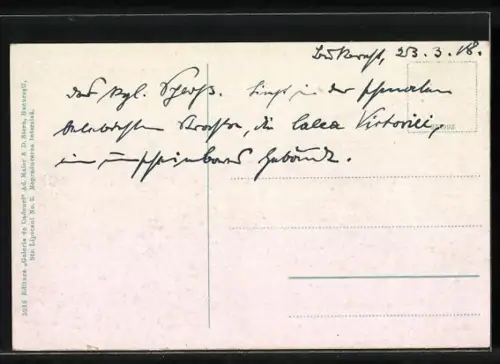 Bukarest, 23. 3. 18.
Das Kgl. Schloß. Liegt in der schmalen
belebtesten Strasse, die Calea Victoriei,
ein unscheinbares Gebäude.
2018 Editura „Galeria de Cadouri" Ad. Maier & D. Stern, București,
Str. Lipscani No. 2. Reproducerea interzisă.